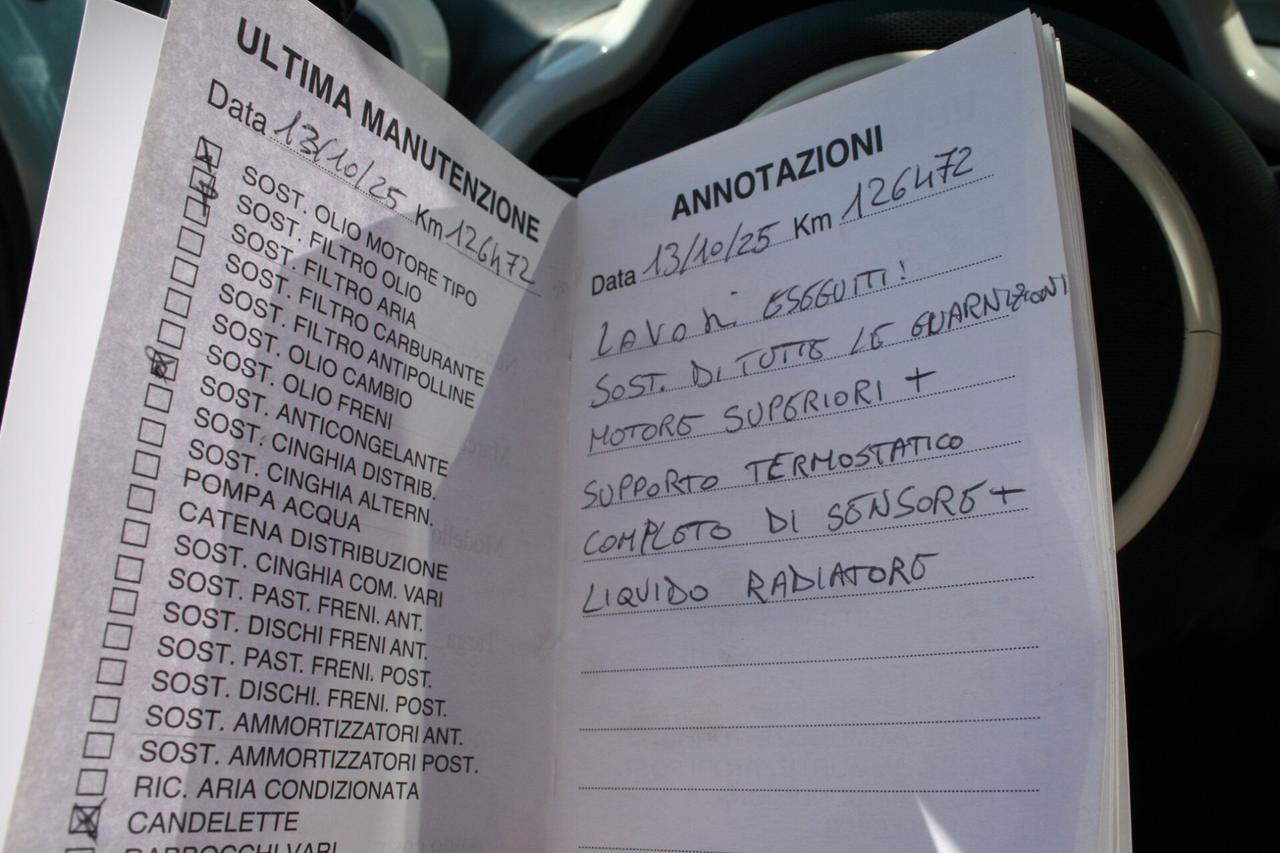 ULTIMA MANUTENZIONE
Data 13/10/25 Km 126472
SOST. OLIO MOTORE TIPO
SOST. FILTRO OLIO
SOST. FILTRO ARIA
SOST. FILTRO CARBURANTE
SOST. FILTRO ANTIPOLLINE
SOST. OLIO CAMBIO
SOST. OLIO FRENI
SOST. ANTICONGELANTE
SOST. CINGHIA DISTRIB.
SOST. CINGHIA ALTERN.
POMPA ACQUA
CATENA DISTRIBUZIONE
SOST. CINGHIA COM. VARI
SOST. PAST. FRENI. ANT.
SOST. DISCHI FRENI ANT.
SOST. PAST. FRENI. POST.
SOST. DISCHI. FRENI. POST.
SOST. AMMORTIZZATORI ANT.
SOST. AMMORTIZZATORI POST.
RIC. ARIA CONDIZIONATA
CANDELETTE
RABBOCCHI VARI
ANNOTAZIONI
Data 13/10/25 Km 126472
LAVORI ESEGUITI!
SOST. DI TUTTE LE GUARNIZIONI
MOTORE SUPERIORI +
SUPPORTO TERMOSTATICO
COMPLETO DI SENSORE +
LIQUIDO RADIATORE